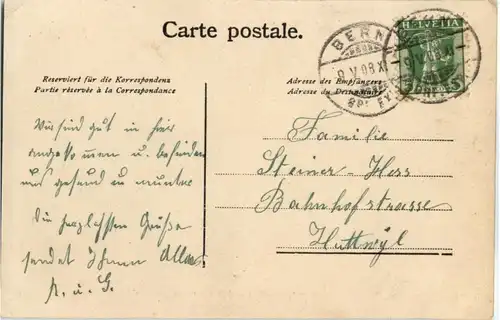 Carte postale.
HELVETIA
5
BERN
9.V.08.XI
Reserviert für die Korrespondenz
Partie réservée à la Correspondance
Adresse des Empfängers
Adresse du Destinataire
Wir sind gut in hier
angekommen u. befinden
uns gesund u munter
Die herzlichsten Grüße
sendet Ihnen Allen
Familie
Steiner-Hess
Bahnhofstrasse
Huttwyl